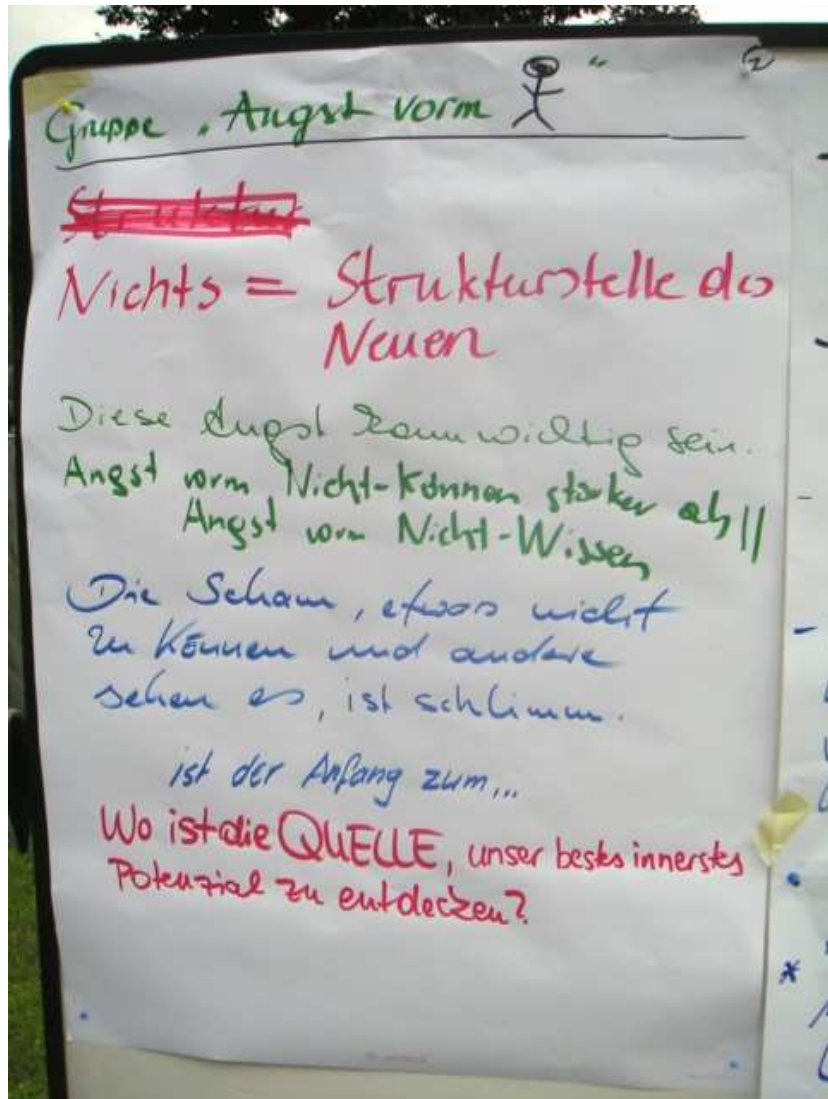 Gruppe „Angst vorm "
2
Struktur
Nichts = Strukturstelle des
Neuen
Diese Angst kann wichtig sein.
Angst vorm Nicht-Können stärker als //
Angst vorm Nicht-Wissen
Die Scham, etwas nicht
zu können und andere
sehen es, ist schlimm.
ist der Anfang zum...
Wo ist die QUELLE, unser bestes innerstes
Potenzial zu entdecken?